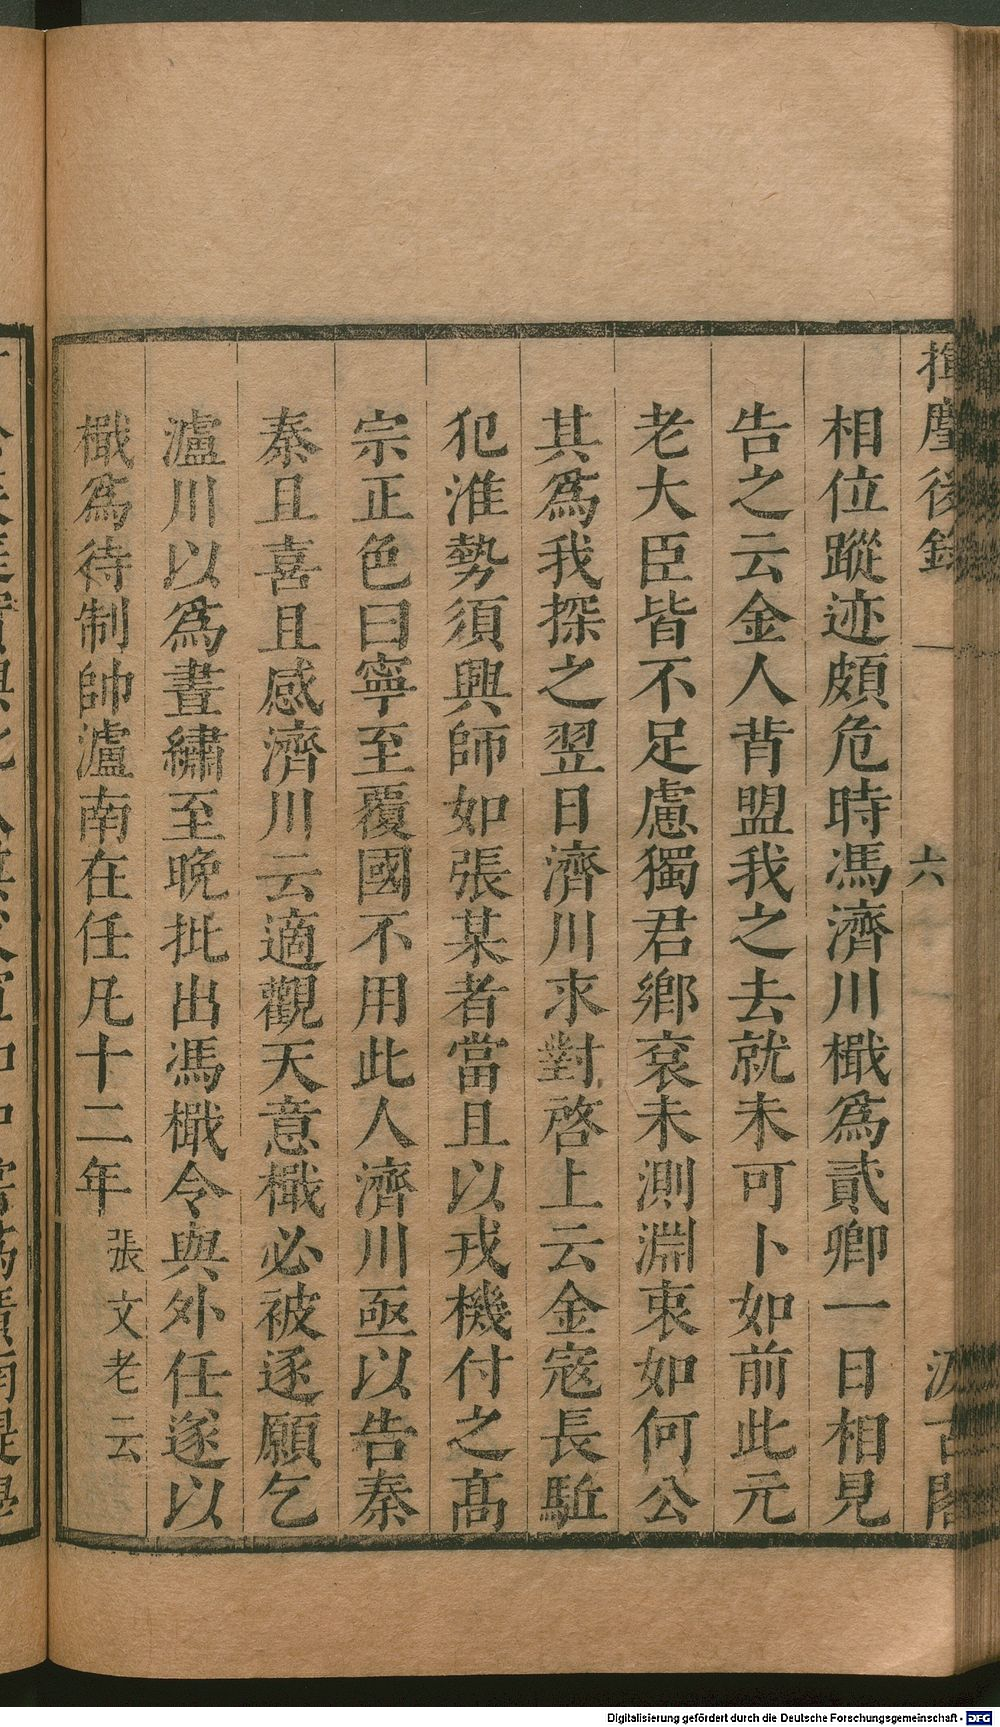 揮麈後錄
六
汲古閣
相位蹤迹頗危時馮濟川檝爲貳卿一日相見
告之云金人背盟我之去就未可卜如前此元
老大臣皆不足慮獨君鄉袞未測淵衷如何公
其爲我探之翌日濟川求對啓上云金寇長驅
犯淮勢須興師如張某者當且以戎機付之高
宗正色曰寧至覆國不用此人濟川亟以告秦
秦且喜且感濟川云適觀天意檝必被逐願乞
瀘川以爲晝繡至晚批出馮檝令與外任遂以
檝爲待制帥瀘南在任凡十二年張文老云
Digitalisierung gefördert durch die Deutsche Forschungsgemeinschaft - DFG